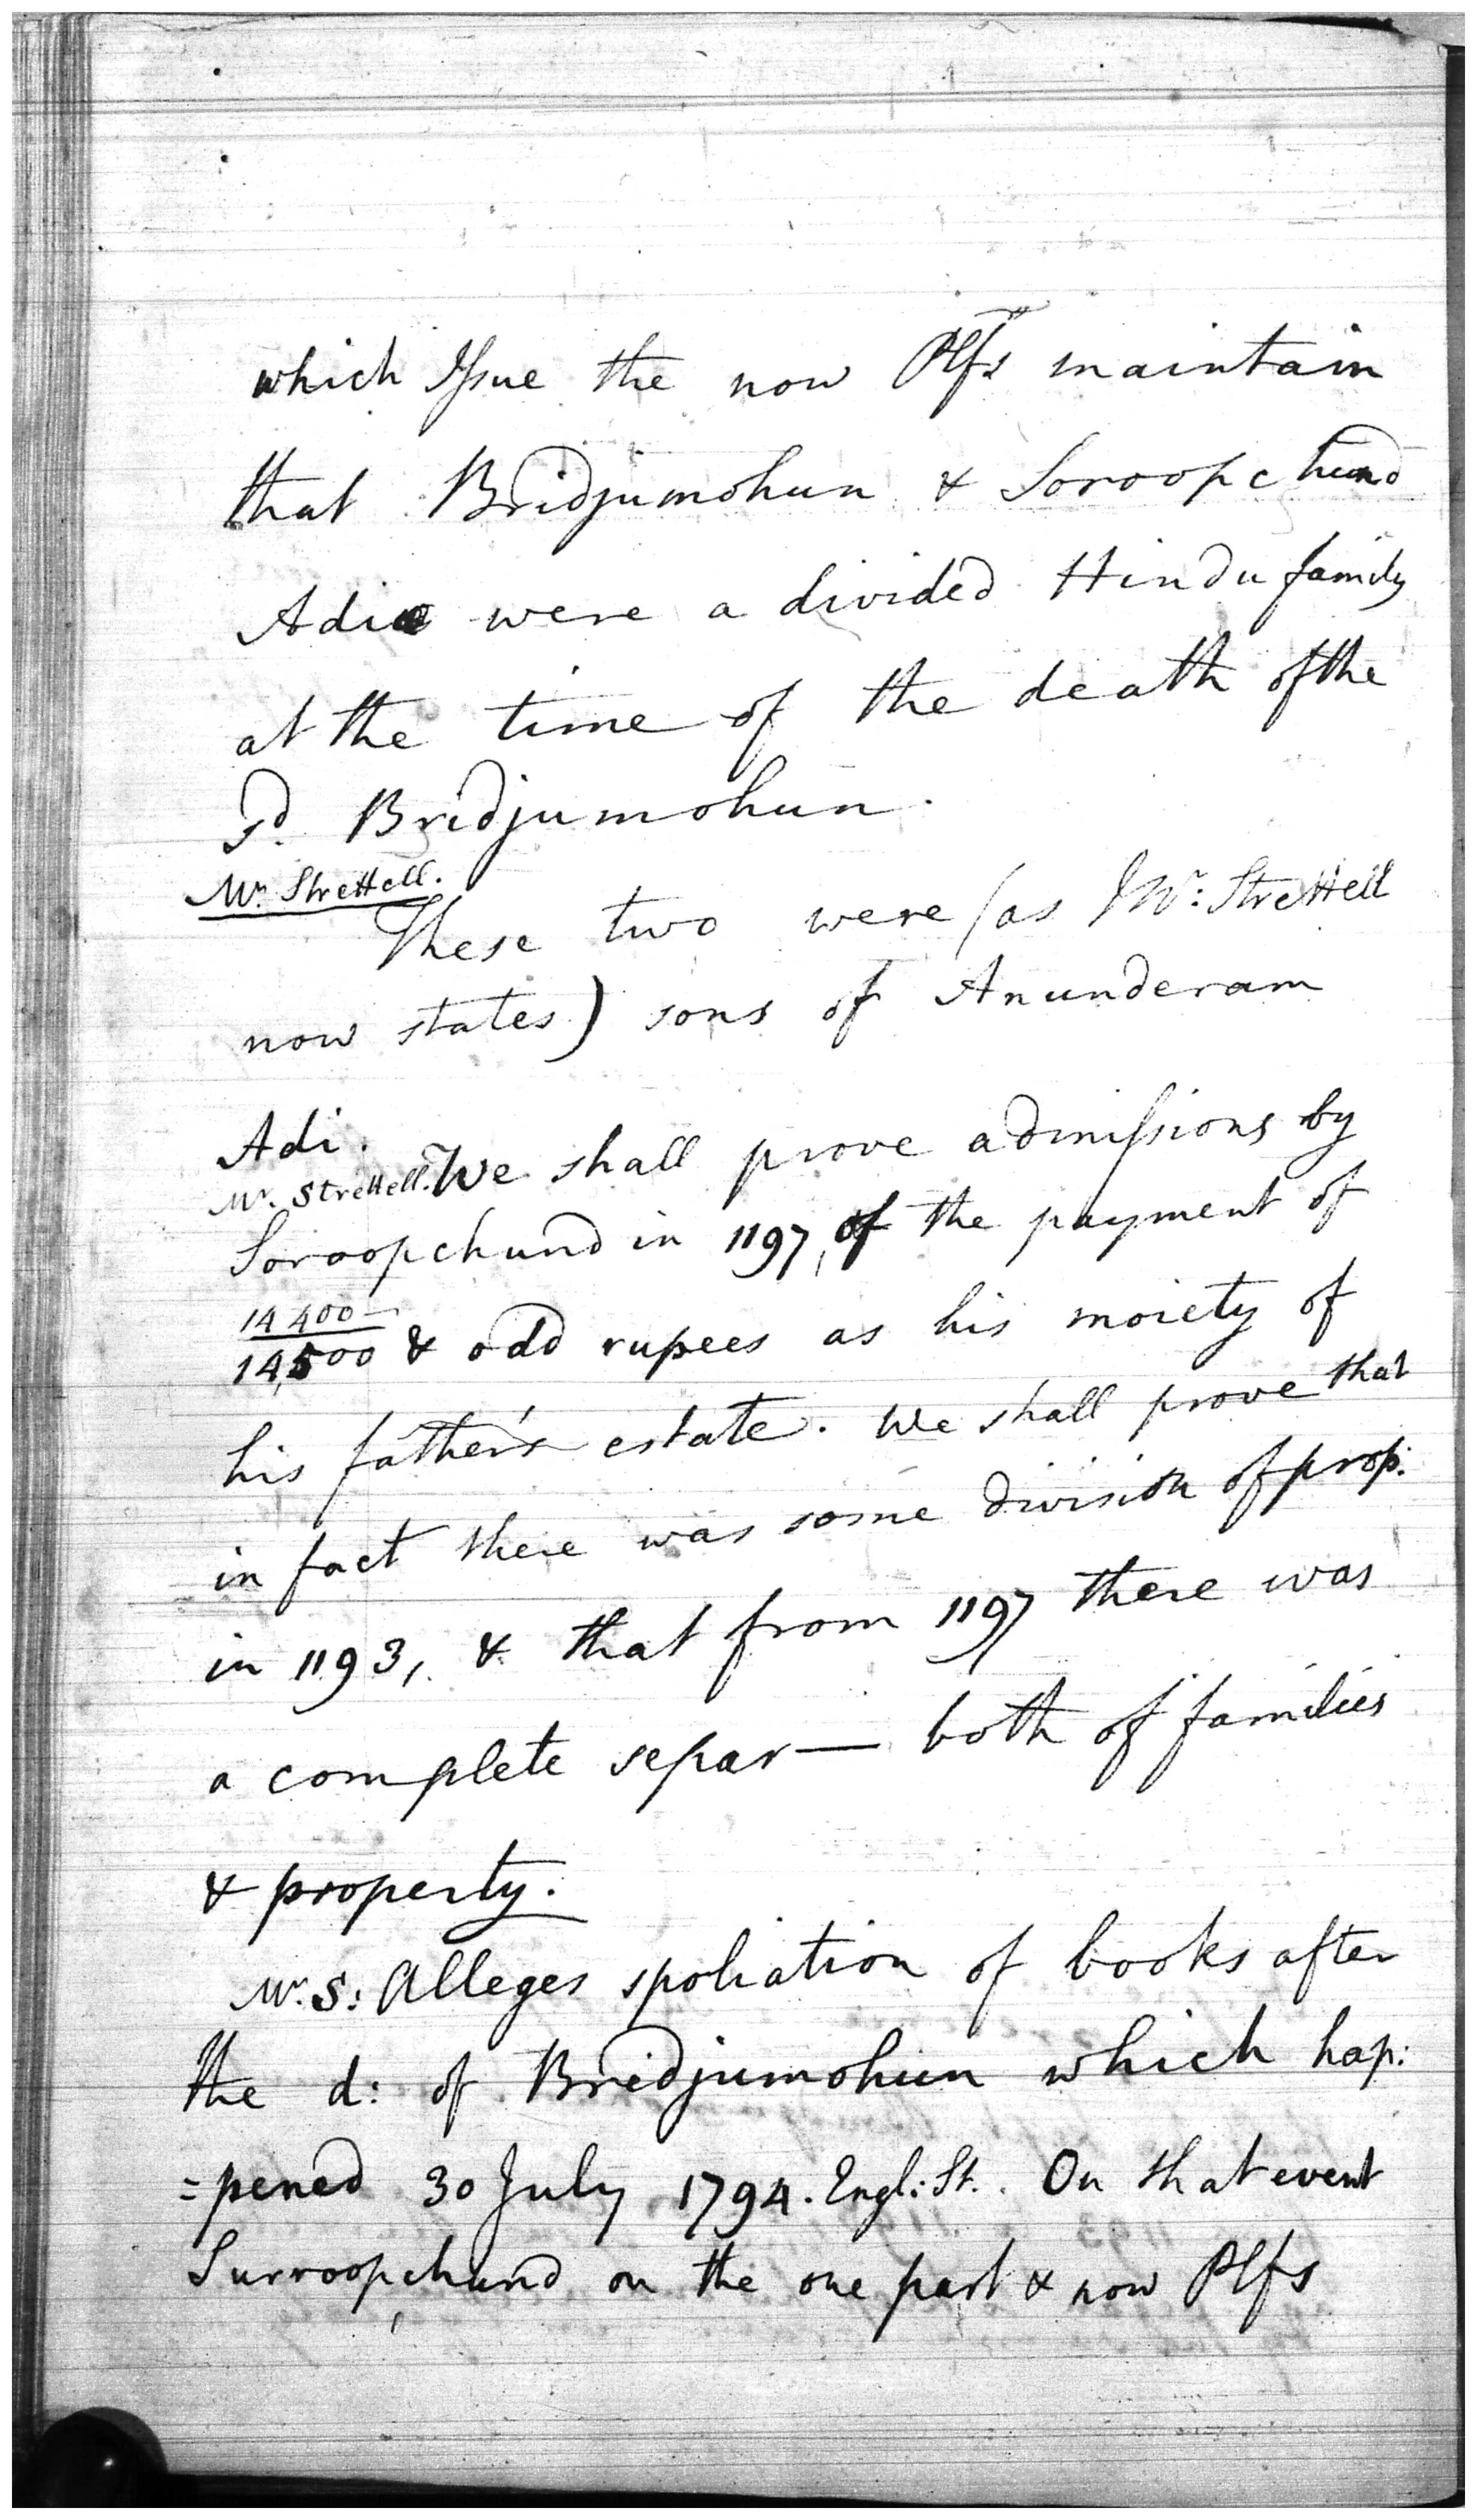 which Issue the now Plfs maintain
that Bridjumohun & Soroopchund
Adie were a divided Hindu family
at the time of the death of the
sd. Bridjumohun.
Mr. Strettell.
These two were (as Mr: Strettell
now states) sons of Anunderam
Adi.
Mr. Strettell. We shall prove admissions by
Soroopchund in 1197, of the payment of
14 400
14,500 & odd rupees as his moiety of
his father's estate. We shall prove that
in fact there was some division of prop:
in 1193, & that from 1197 there was
a complete separ— both of families
& property.
Mr. S: Alleges spoliation of books after
the d: of Bridjumohun which hap:
=pened 30 July 1794. Engl: St. On that event
Surroopchund on the one part & now Plfs